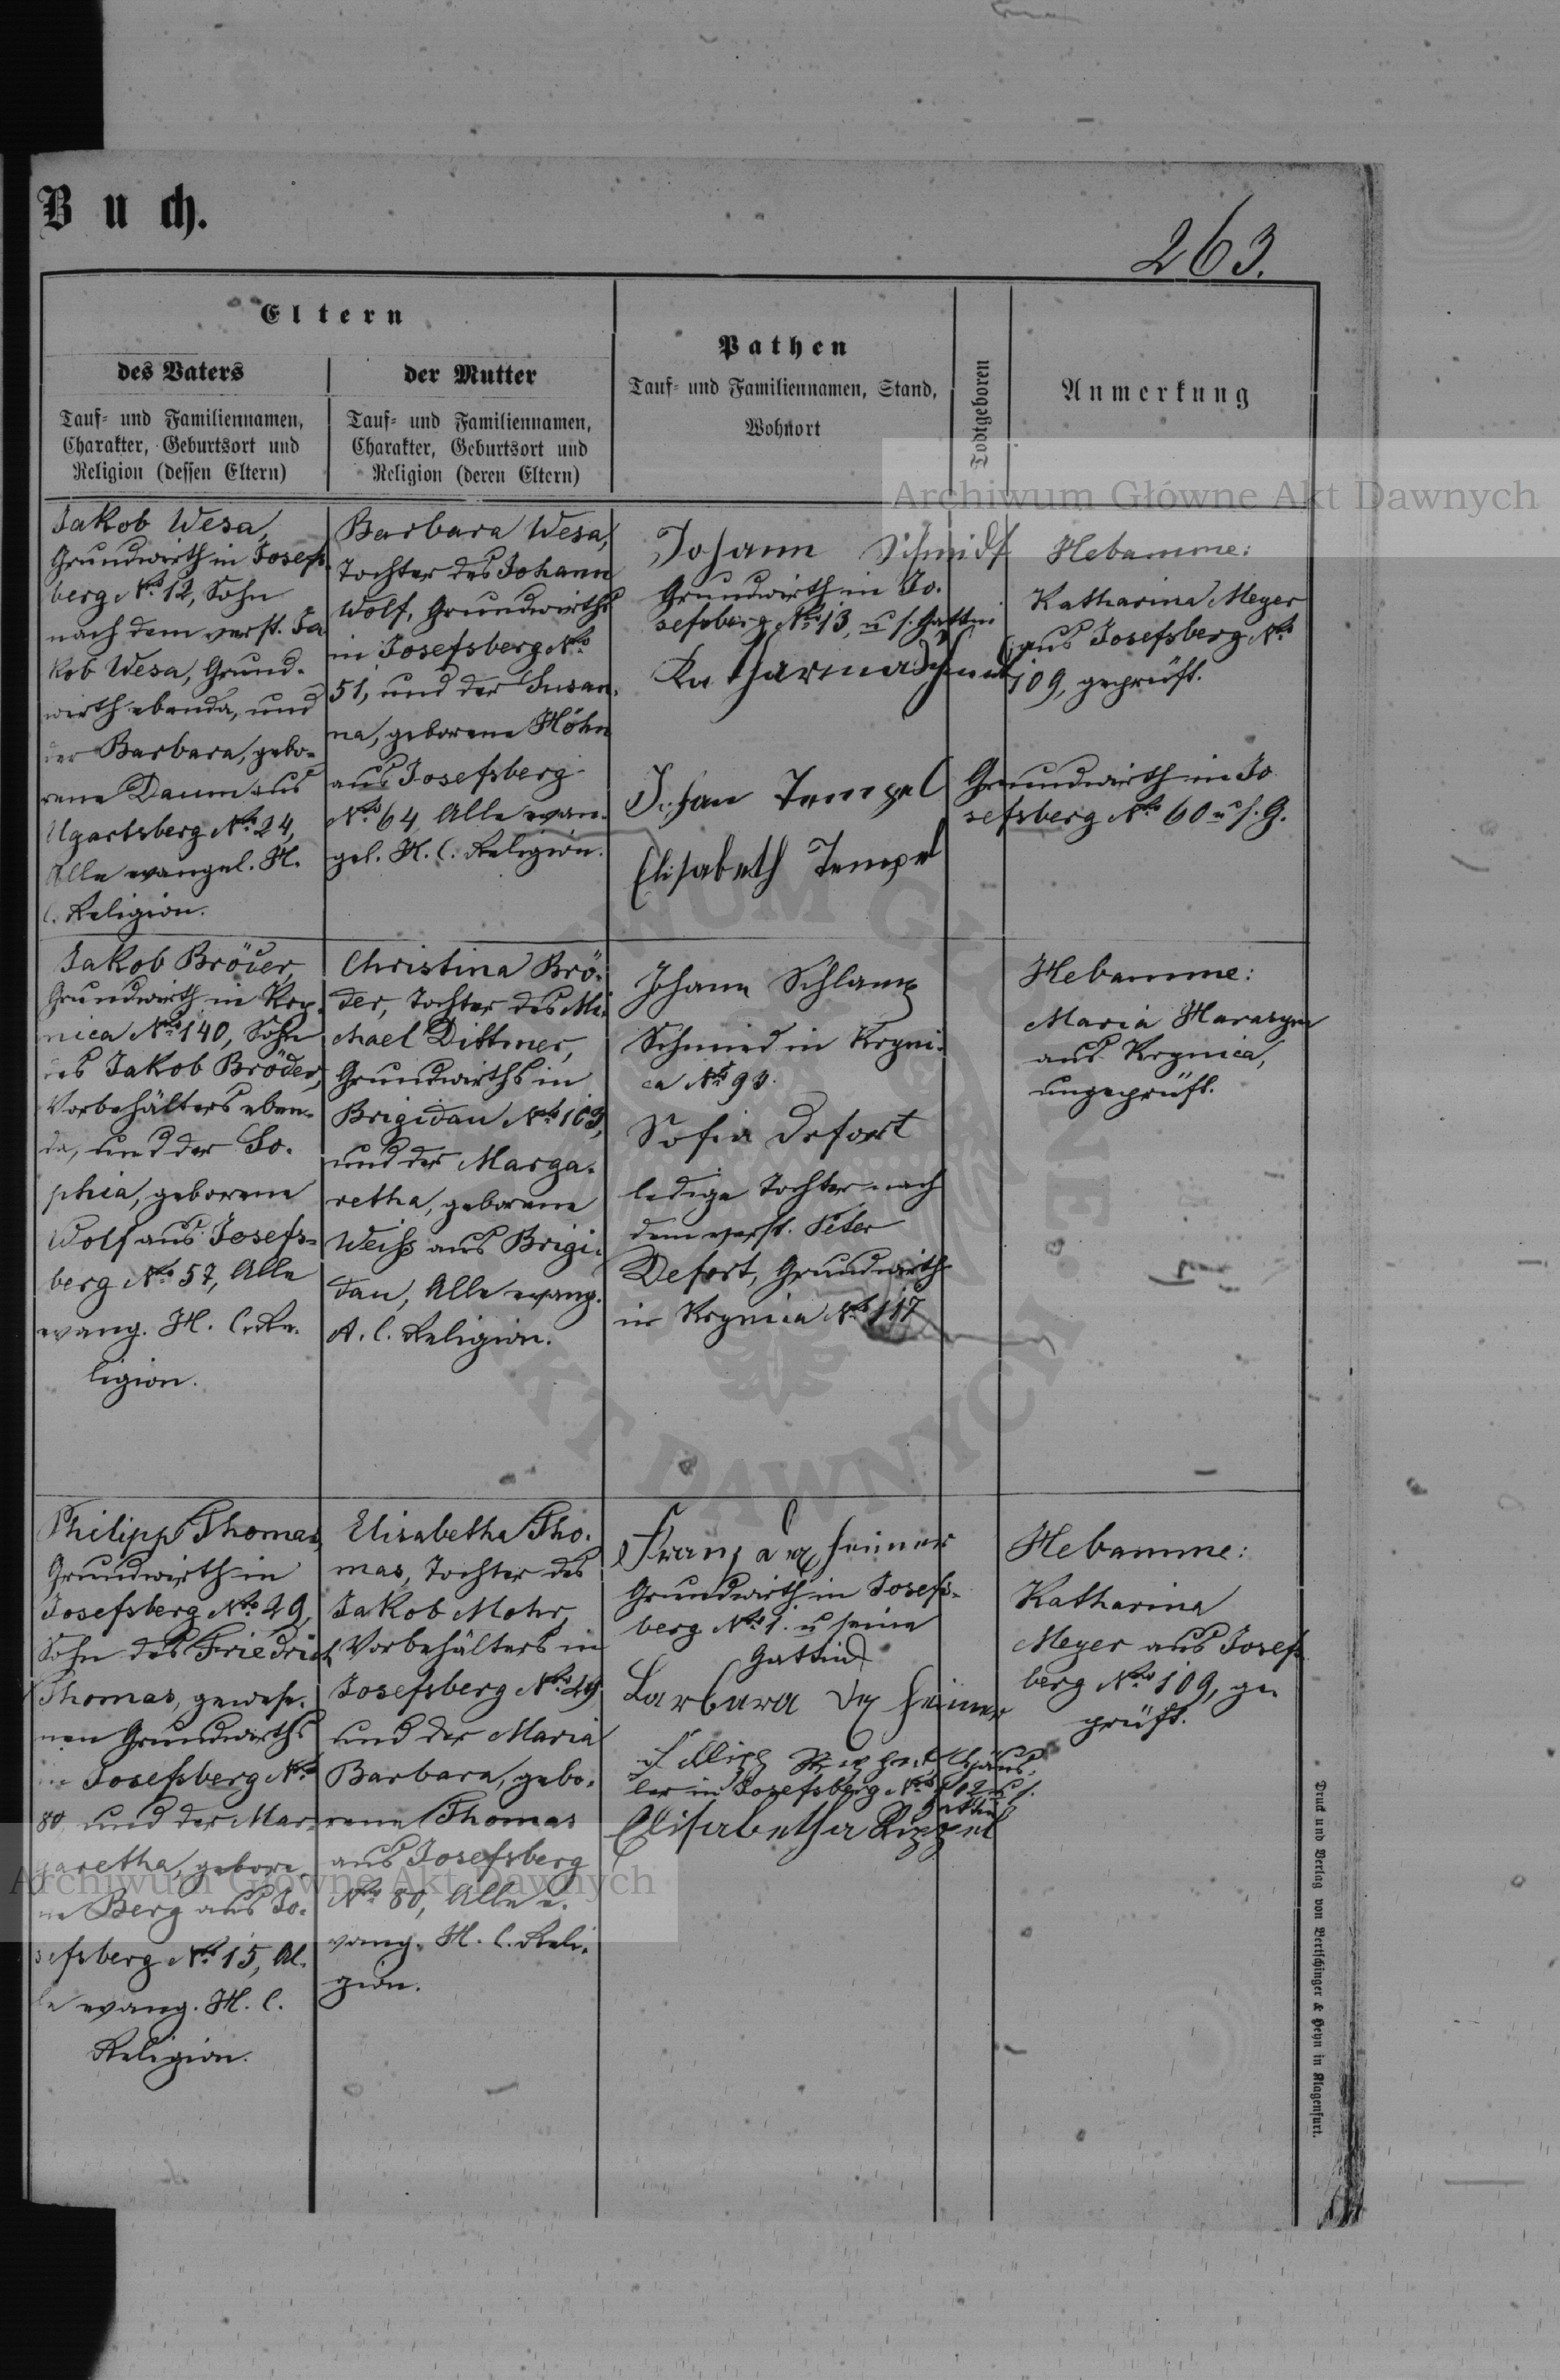 Buch.
263.
Eltern
des Vaters
Tauf- und Familiennamen,
Charakter, Geburtsort und
Religion (dessen Eltern)
der Mutter
Tauf- und Familiennamen,
Charakter, Geburtsort und
Religion (deren Eltern)
Pathen
Tauf- und Familiennamen, Stand,
Wohnort
Todtgeboren
Anmerkung
Archiwum Główne Akt Dawnych
Jakob Wesa,
Grundwirth in Josefs-
berg No. 12, Sohn
nach dem verst. Ja
kob Wesa, Grund-
wirth ebenda, und
der Barbara, gebo-
rene Daum aus
Ugartsberg No. 24,
Alle evangel. H.
C. Religion.
Barbara Wesa,
Tochter des Johann
Wolf, Grundwirths
in Josefsberg No.
51, und der Susan-
na, geborene Höhn
aus Josefsberg
No. 64 Alle evan-
gel. H. C. Religion.
Johann Schmidt
Grundwirth in Jo-
sefsberg No. 13, u s. Gattin
Katharina Schmidt
Johan Tempel
Elisabeth Tempel
Grundwirth in Jo
sefsberg No. 60 u s. G.
Hebamme:
Katharina Meyer
aus Josefsberg No.
109, geprüft.
Jakob Bröder,
Grundwirth in Kry-
nica No. 140, Sohn
des Jakob Bröder,
Vorbehälters eben-
da, und der So-
phia, geborene
Wolf aus Josefs-
berg No. 57, Alle
evang. H. C. Re-
ligion.
Christina Brö-
der, Tochter des Mi-
chael Dittmer,
Grundwirths in
Brigidau No. 103,
und der Marga-
retha, geborene
Weiss aus Brigi-
dau, Alle evang.
A. C. Religion.
Johann Schlamp
Schmied in Kryni-
ca No. 93.
Sofia Defort
ledige Tochter nach
dem verst. Peter
Defort, Grundwirth
in Krynica No. 117
Hebamme:
Maria Harasym
aus Krynica,
ungeprüft.
Philipp Thomas,
Grundwirth in
Josefsberg No. 29,
Sohn des Friedrich
Thomas, gewese-
nen Grundwirths
in Josefsberg No.
80, und der Mar-
garetha, gebore
ne Berg aus Jo-
sefsberg No. 15, Al-
le evang. H. C.
Religion.
Elisabetha Tho-
mas, Tochter des
Jakob Mohr,
Vorbehälters in
Josefsberg No. 49
und der Maria
Barbara, gebo-
rene Thomas
aus Josefsberg
No. 80, Alle e-
vang. H. C. Reli-
gion.
Franz
Grundwirth in Josefs-
berg No. 1. u seine
Gattin
Barbara
Häus-
ler in Josefsberg No. 102 u s.
Gattin
Elisabetha Rippel
Hebamme:
Katharina
Meyer aus Josefs
berg No. 109, ge-
prüft.
Archiwum Główne Akt Dawnych
Druck und Verlag von Bertschinger & Heyn in Klagenfurt.